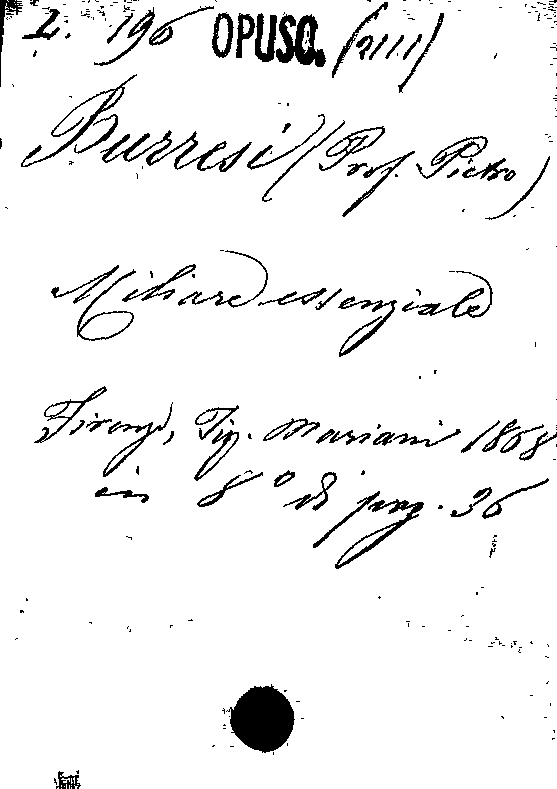 L. 196 OPUSC. (2111)
Burresi (Prof. Pietro)
Miliare essenziale
Firenze, Tip. Mariani 1868
in 8° di pag. 36